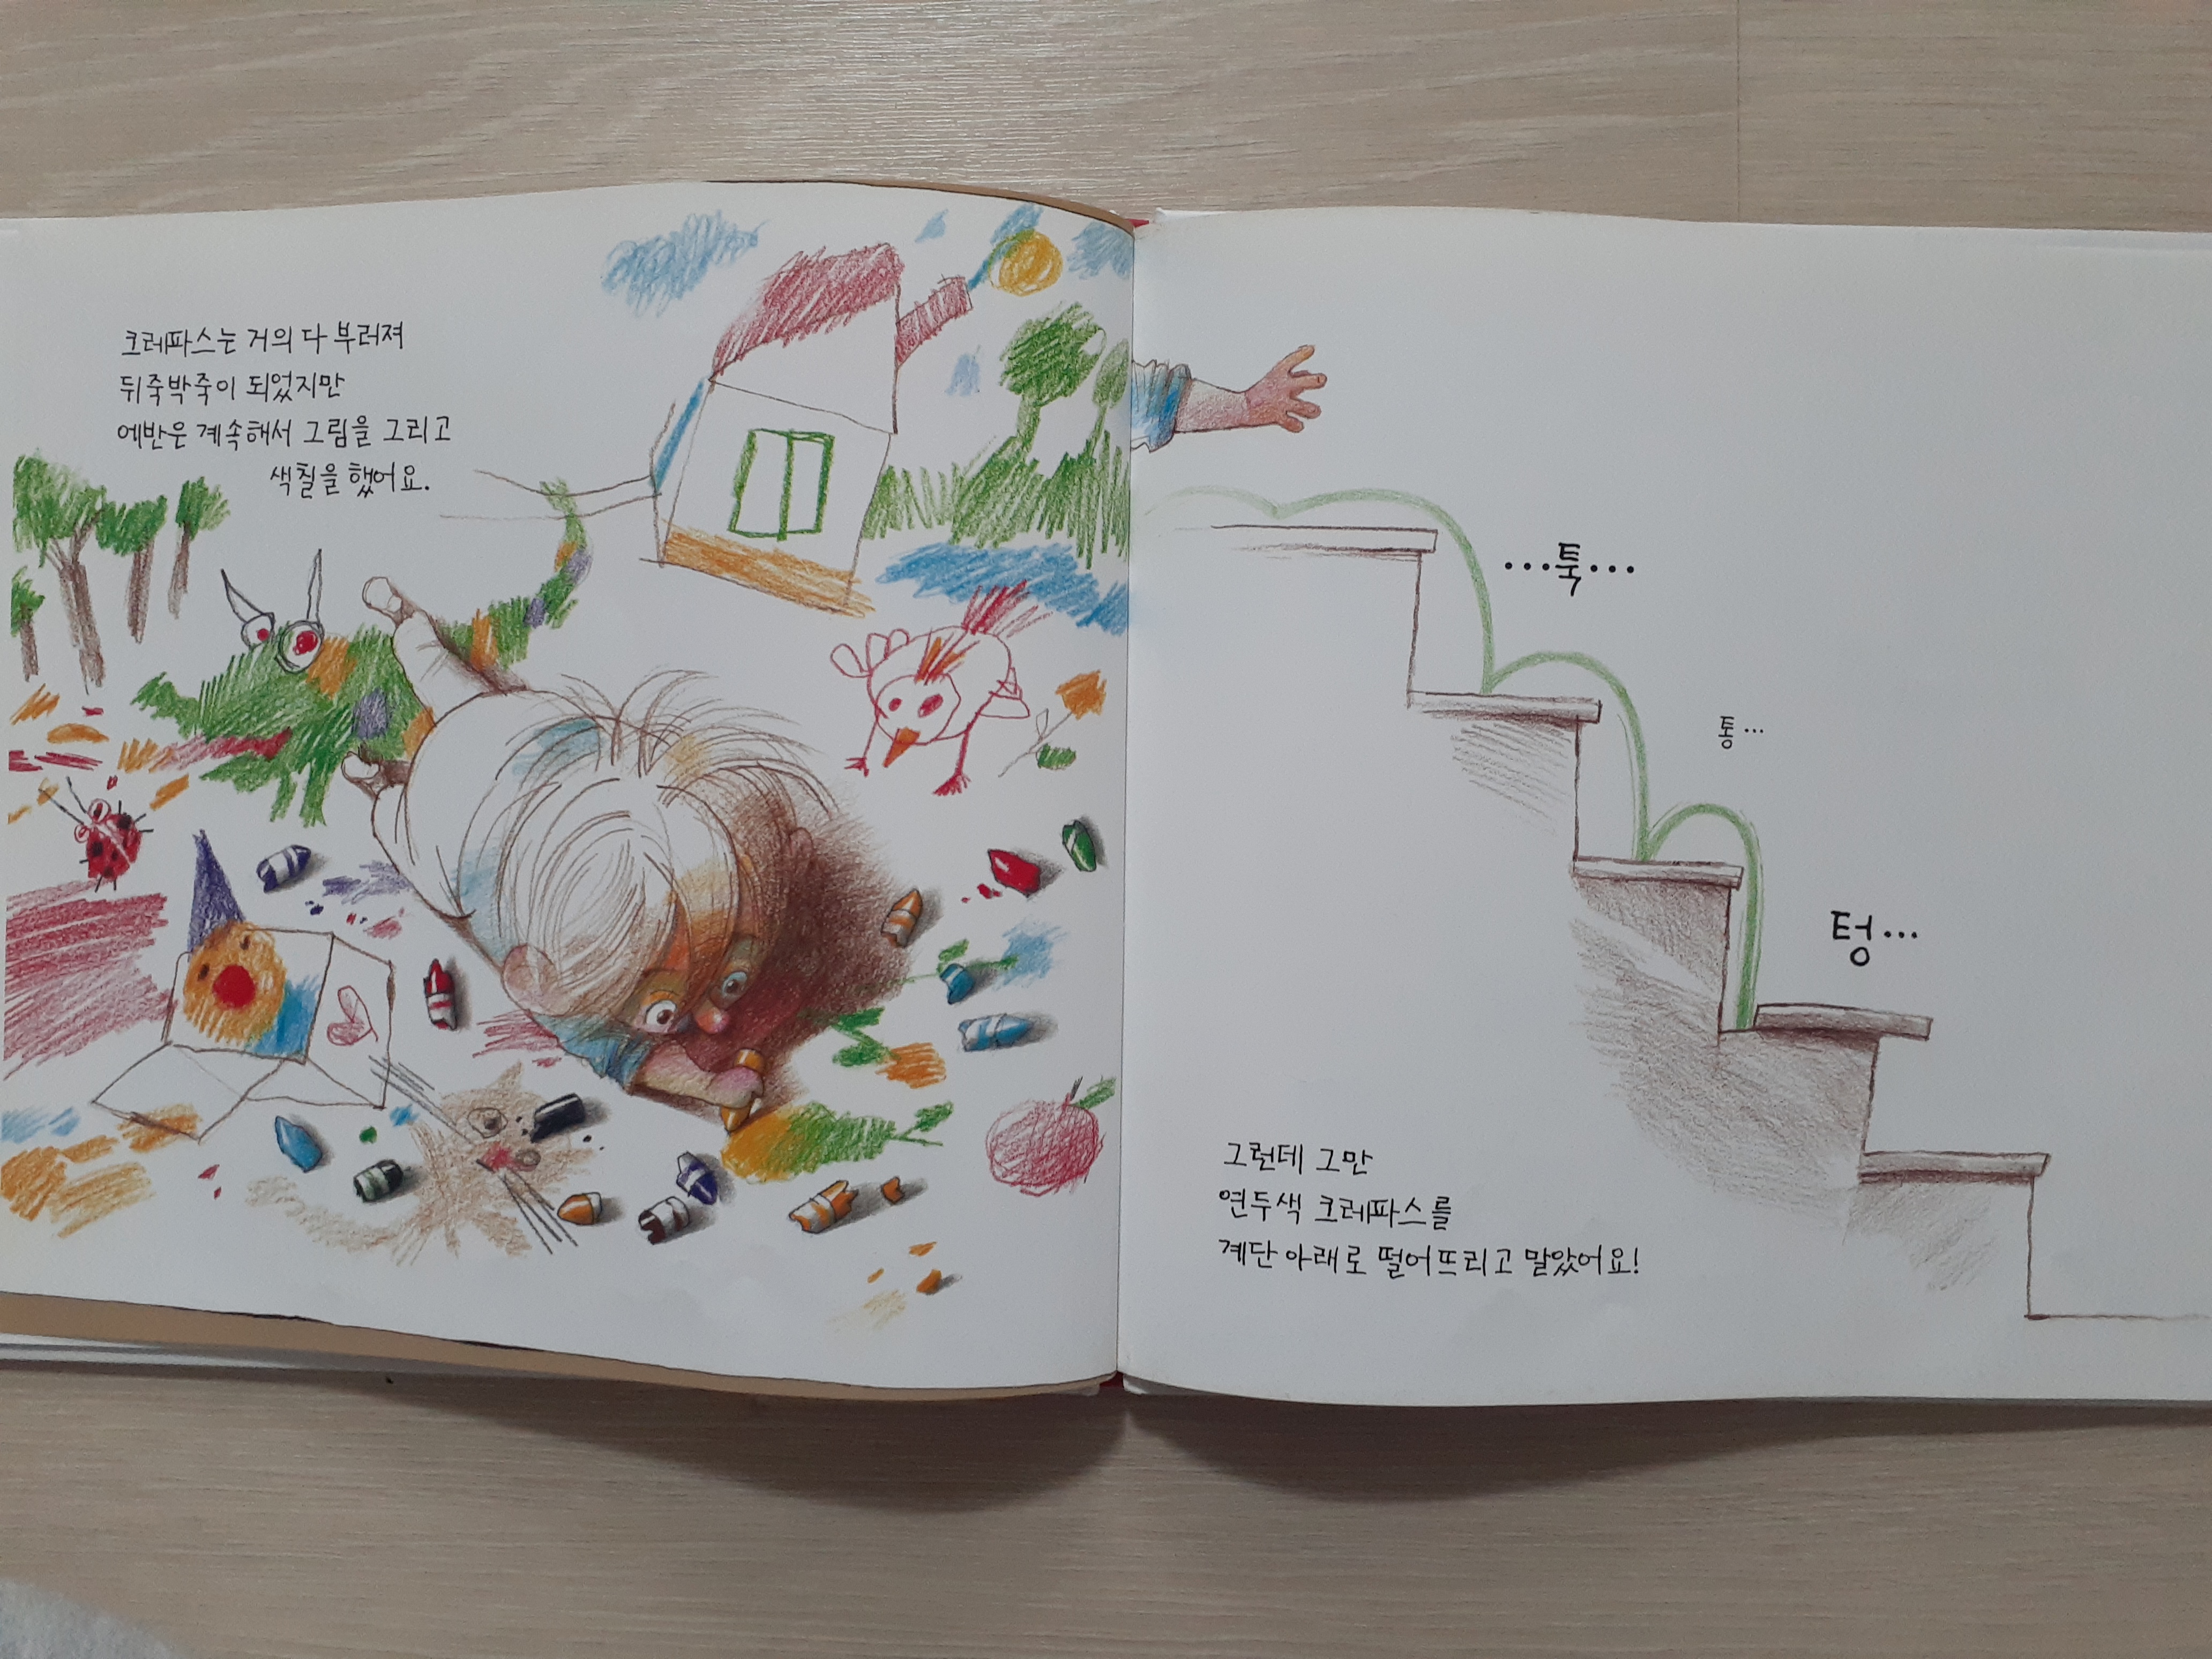 크레파스는 거의 다 부러져
뒤죽박죽이 되었지만
에반은 계속해서 그림을 그리고
색칠을 했어요.
···툭···
통···
텅···
그런데 그만
연두색 크레파스를
계단 아래로 떨어뜨리고 말았어요!